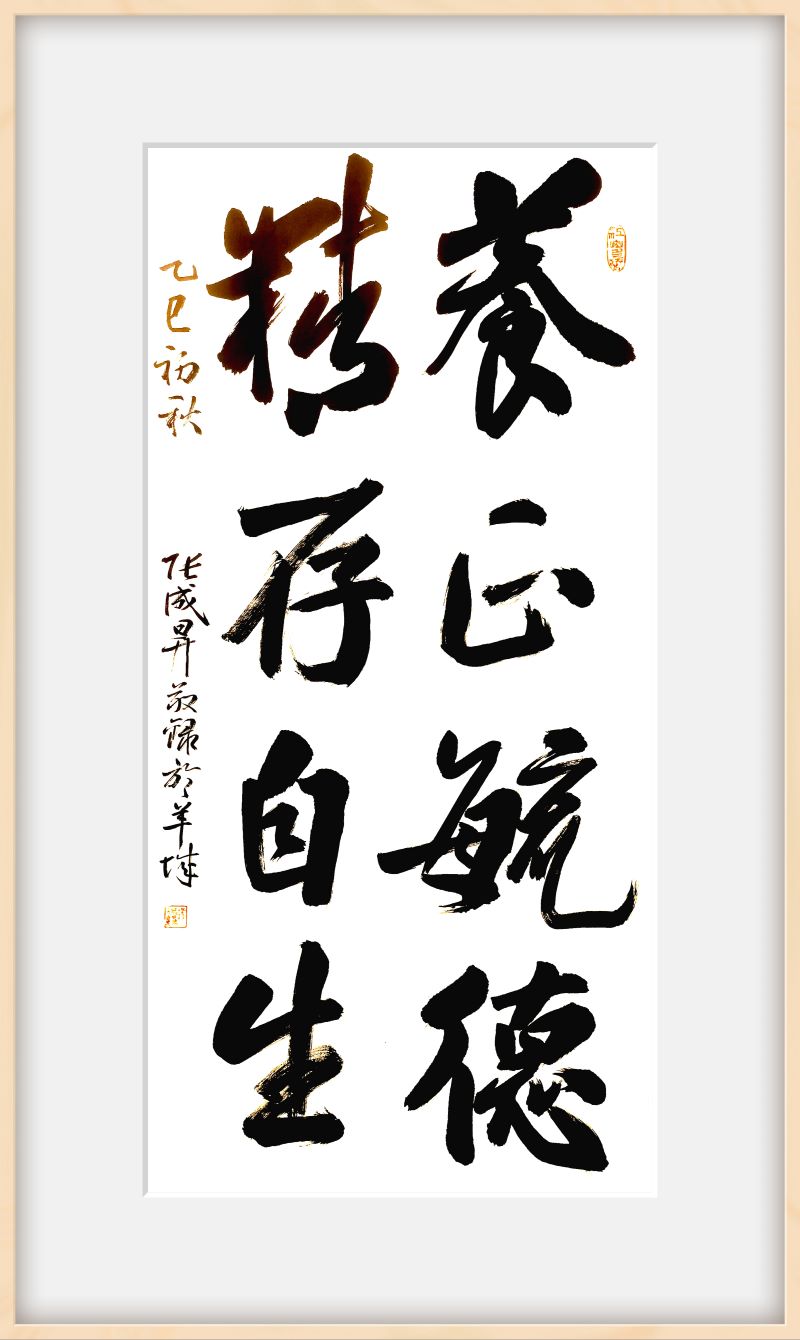 養正毓德
精存自生
乙巳初秋
張成昇敬錄於羊城